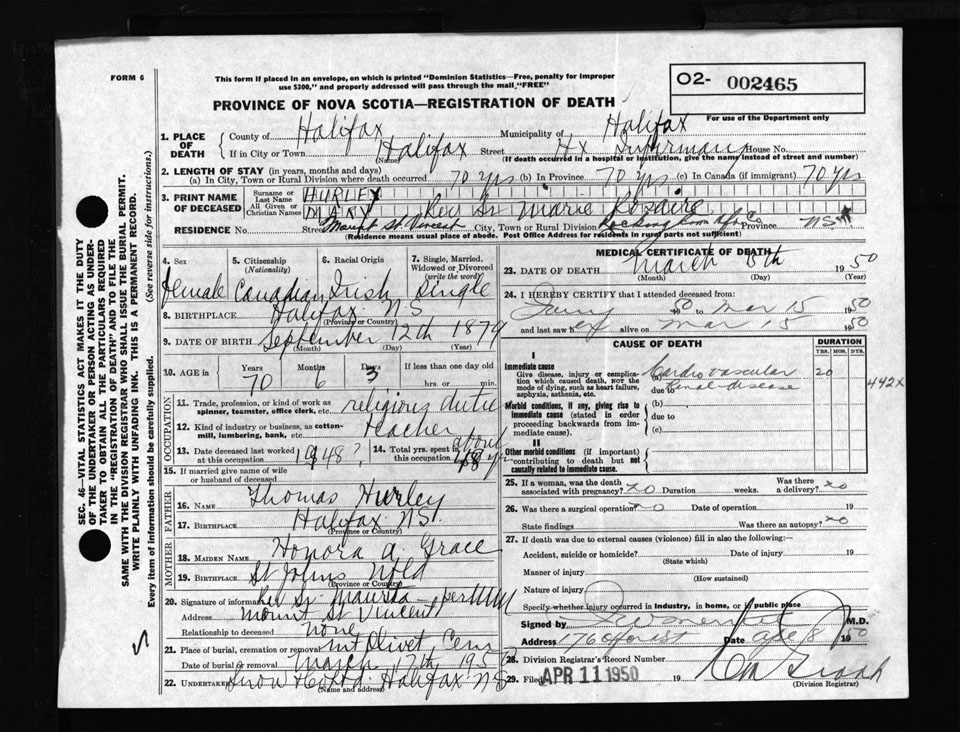 FORM 6
This form if placed in an envelope, on which is printed "Dominion Statistics—Free, penalty for improper
use $300," and properly addressed will pass through the mail "FREE"
O2- 002465
PROVINCE OF NOVA SCOTIA—REGISTRATION OF DEATH
For use of the Department only
1. PLACE OF DEATH
County of Halifax Municipality of Halifax
If in City or Town Halifax (Name) Street Hx House No.
(If death occurred in a hospital or institution, give the name instead of street and number)
2. LENGTH OF STAY (in years, months and days)
(a) In City, Town or Rural Division where death occurred 70 yrs (b) In Province 70 yrs (c) In Canada (if immigrant) 70 yrs
3. PRINT NAME OF DECEASED
Surname or Last Name HURLEY
All Given or Christian Names MARY Rev Sr Marie Rosaire
RESIDENCE No. Street Mount St Vincent City, Town or Rural Division Rockingham Province NS
(Residence means usual place of abode. Post Office Address for residents in rural parts not sufficient)
4. Sex female
5. Citizenship (Nationality) Canadian
6. Racial Origin Irish
7. Single, Married, Widowed or Divorced (write the word) Single
8. BIRTHPLACE Halifax NS
(Province or Country)
9. DATE OF BIRTH September 12th 1879
(Month) (Day) (Year)
10. AGE in Years 70 Months 6 Days 3 If less than one day old hrs. or min.
OCCUPATION
11. Trade, profession, or kind of work as spinner, teamster, office clerk, etc. religious
12. Kind of industry or business, as cotton-mill, lumbering, bank, etc. teacher
13. Date deceased last worked at this occupation 1948?
14. Total yrs. spent in this occupation about 48
15. If married give name of wife or husband of deceased
FATHER
16. NAME Thomas Hurley
17. BIRTHPLACE Halifax NS.
(Province or Country)
MOTHER
18. MAIDEN NAME Honora A. Grace
19. BIRTHPLACE St Johns Nfld
(Province or Country)
20. Signature of informant Rev Sr Maurita per
Address Mount St Vincent
Relationship to deceased none
21. Place of burial, cremation or removal Mt Olivet Cem
Date of burial or removal March 17th 1950
22. UNDERTAKER Snow Halifax NS
(Name and address)
MEDICAL CERTIFICATE OF DEATH
23. DATE OF DEATH March 15th 1950
(Month) (Day) (Year)
24. I HEREBY CERTIFY that I attended deceased from:
50 to Mar 15 1950
and last saw h er alive on Mar 15 1950
CAUSE OF DEATH
DURATION
YRS. MOS. DYS.
I
Immediate cause
Give disease, injury or complication which caused death, NOT the mode of dying, such as heart failure, asphyxia, asthenia, etc.
(a) Cardio vascular 20
due to renal disease
442X
Morbid conditions, if any, giving rise to immediate cause (stated in order proceeding backwards from immediate cause).
(b)
due to
(c)
II
Other morbid conditions (if important) contributing to death but not causally related to immediate cause.
25. If a woman, was the death associated with pregnancy? no Duration weeks. Was there a delivery? no
26. Was there a surgical operation? no Date of operation 19
State findings Was there an autopsy? no
27. If death was due to external causes (violence) fill in also the following:—
Accident, suicide or homicide? Date of injury 19
(State which)
Manner of injury
(How sustained)
Nature of injury
Specify whether injury occurred in industry, in home, or in public place
Signed by M.D.
Address Date 8 1950
28. Division Registrar's Record Number
29. Filed APR 11 1950 19
(Division Registrar)
SEC. 46—VITAL STATISTICS ACT MAKES IT THE DUTY
OF THE UNDERTAKER OR PERSON ACTING AS UNDER-
TAKER TO OBTAIN ALL THE PARTICULARS REQUIRED
IN THE "REGISTRATION OF DEATH" AND TO FILE THE
SAME WITH THE DIVISION REGISTRAR WHO SHALL ISSUE THE BURIAL PERMIT.
WRITE PLAINLY WITH UNFADING INK. THIS IS A PERMANENT RECORD.
Every item of information should be carefully supplied. (See reverse side for instructions.)